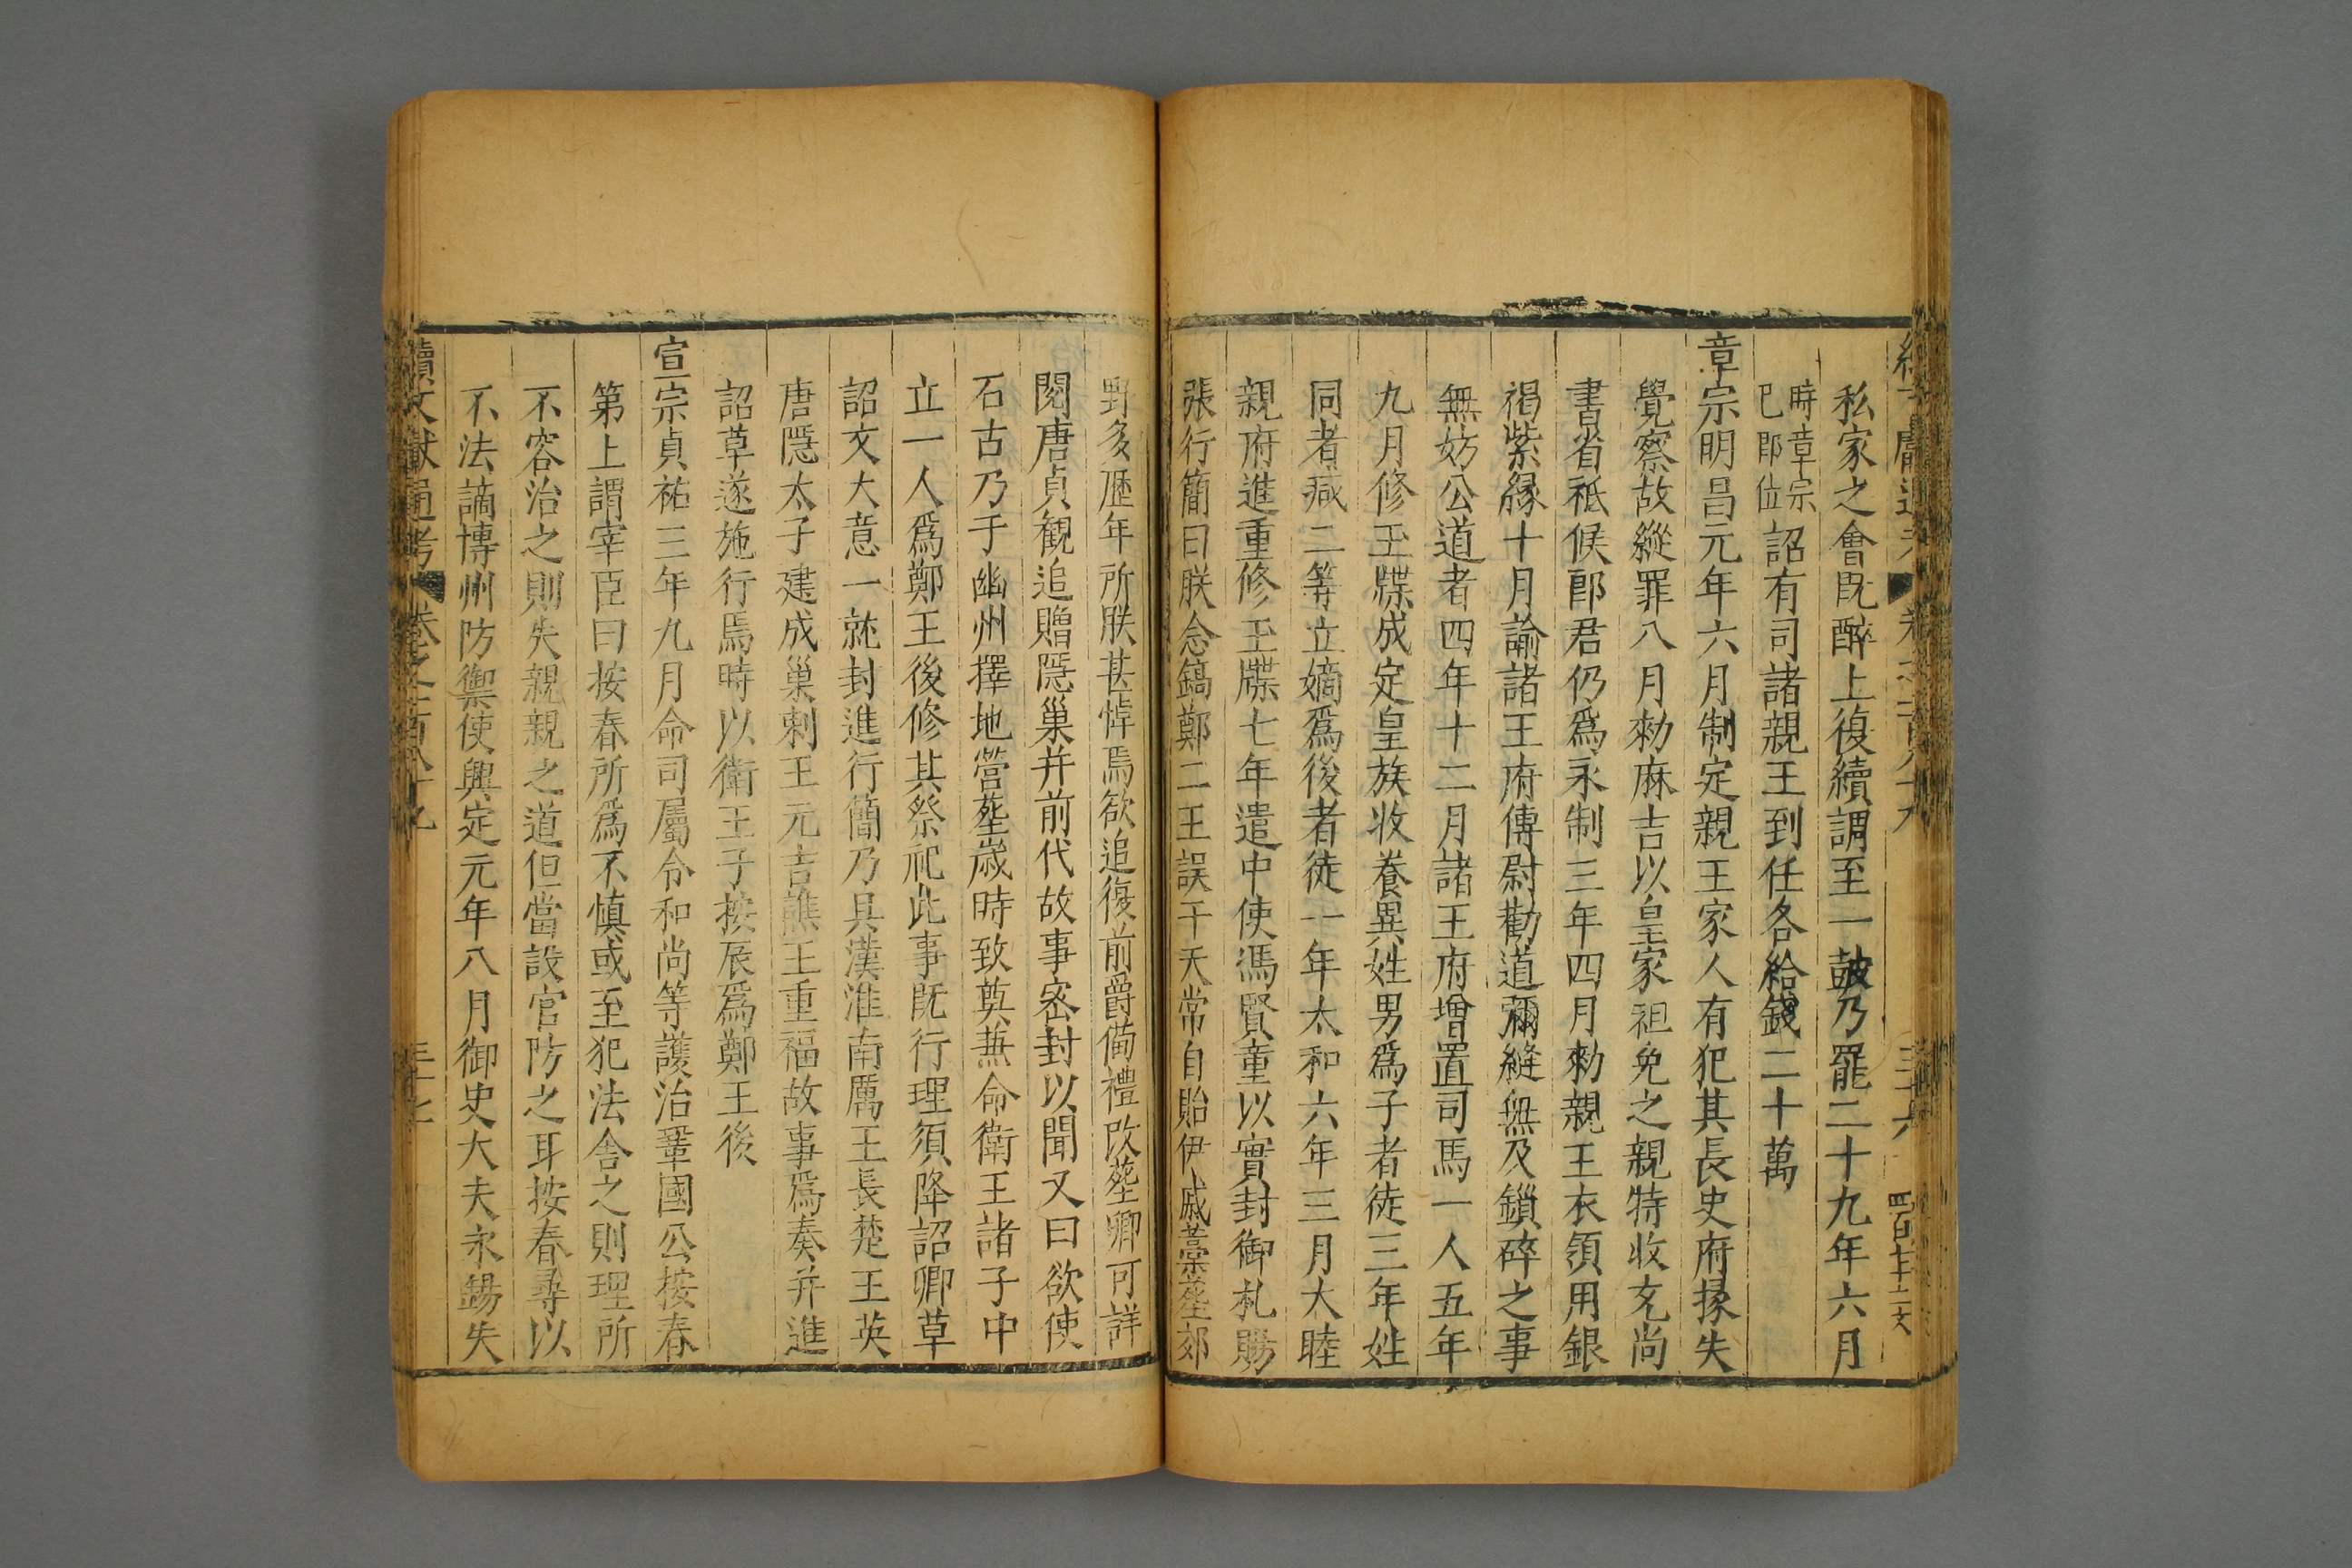 私家之會既醉上復續調至一鼓乃罷二十九年六月
時章宗
巳即位
詔有司諸親王到任各給錢二十萬
章宗明昌元年六月制定親王家人有犯其長史府掾失
覺察故縱罪八月勑麻吉以皇家袒免之親特收充尚
書省祗候郎君仍爲永制三年四月勑親王衣領用銀
褐紫緣十月諭諸王府傅尉勸道彌縫無及鎖碎之事
無妨公道者四年十二月諸王府增置司馬一人五年
九月修玉牒成定皇族收養異姓男爲子者徒三年姓
同者减二等立嫡爲後者徒一年太和六年三月大睦
親府進重修玉牒七年遣中使馮賢童以實封御札賜
張行簡曰朕念鎬鄭二王誤干天常自貽伊戚藁塟郊
野多歷年所朕甚悼焉欲追復前爵備禮改塟卿可詳
閱唐貞觀追贈隱巢并前代故事密封以聞又曰欲使
石古乃于幽州擇地營塟歲時致奠兼命衛王諸子中
立一人爲鄭王後修其祭祀此事既行理須降詔卿草
詔文大意一就封進行簡乃具漢淮南厲王長楚王英
唐隱太子建成巢剌王元吉譙王重福故事爲奏并進
詔草遂施行焉時以衛王子按辰爲鄭王後
宣宗貞祐三年九月命司屬令和尚等護治鞏國公按春
第上謂宰臣曰按春所爲不慎或至犯法舍之則理所
不容治之則失親親之道但當設官防之耳按春尋以
不法謫博州防禦使興定元年八月御史大夫永錫失
續文獻通考 卷之二百八十九 三十七